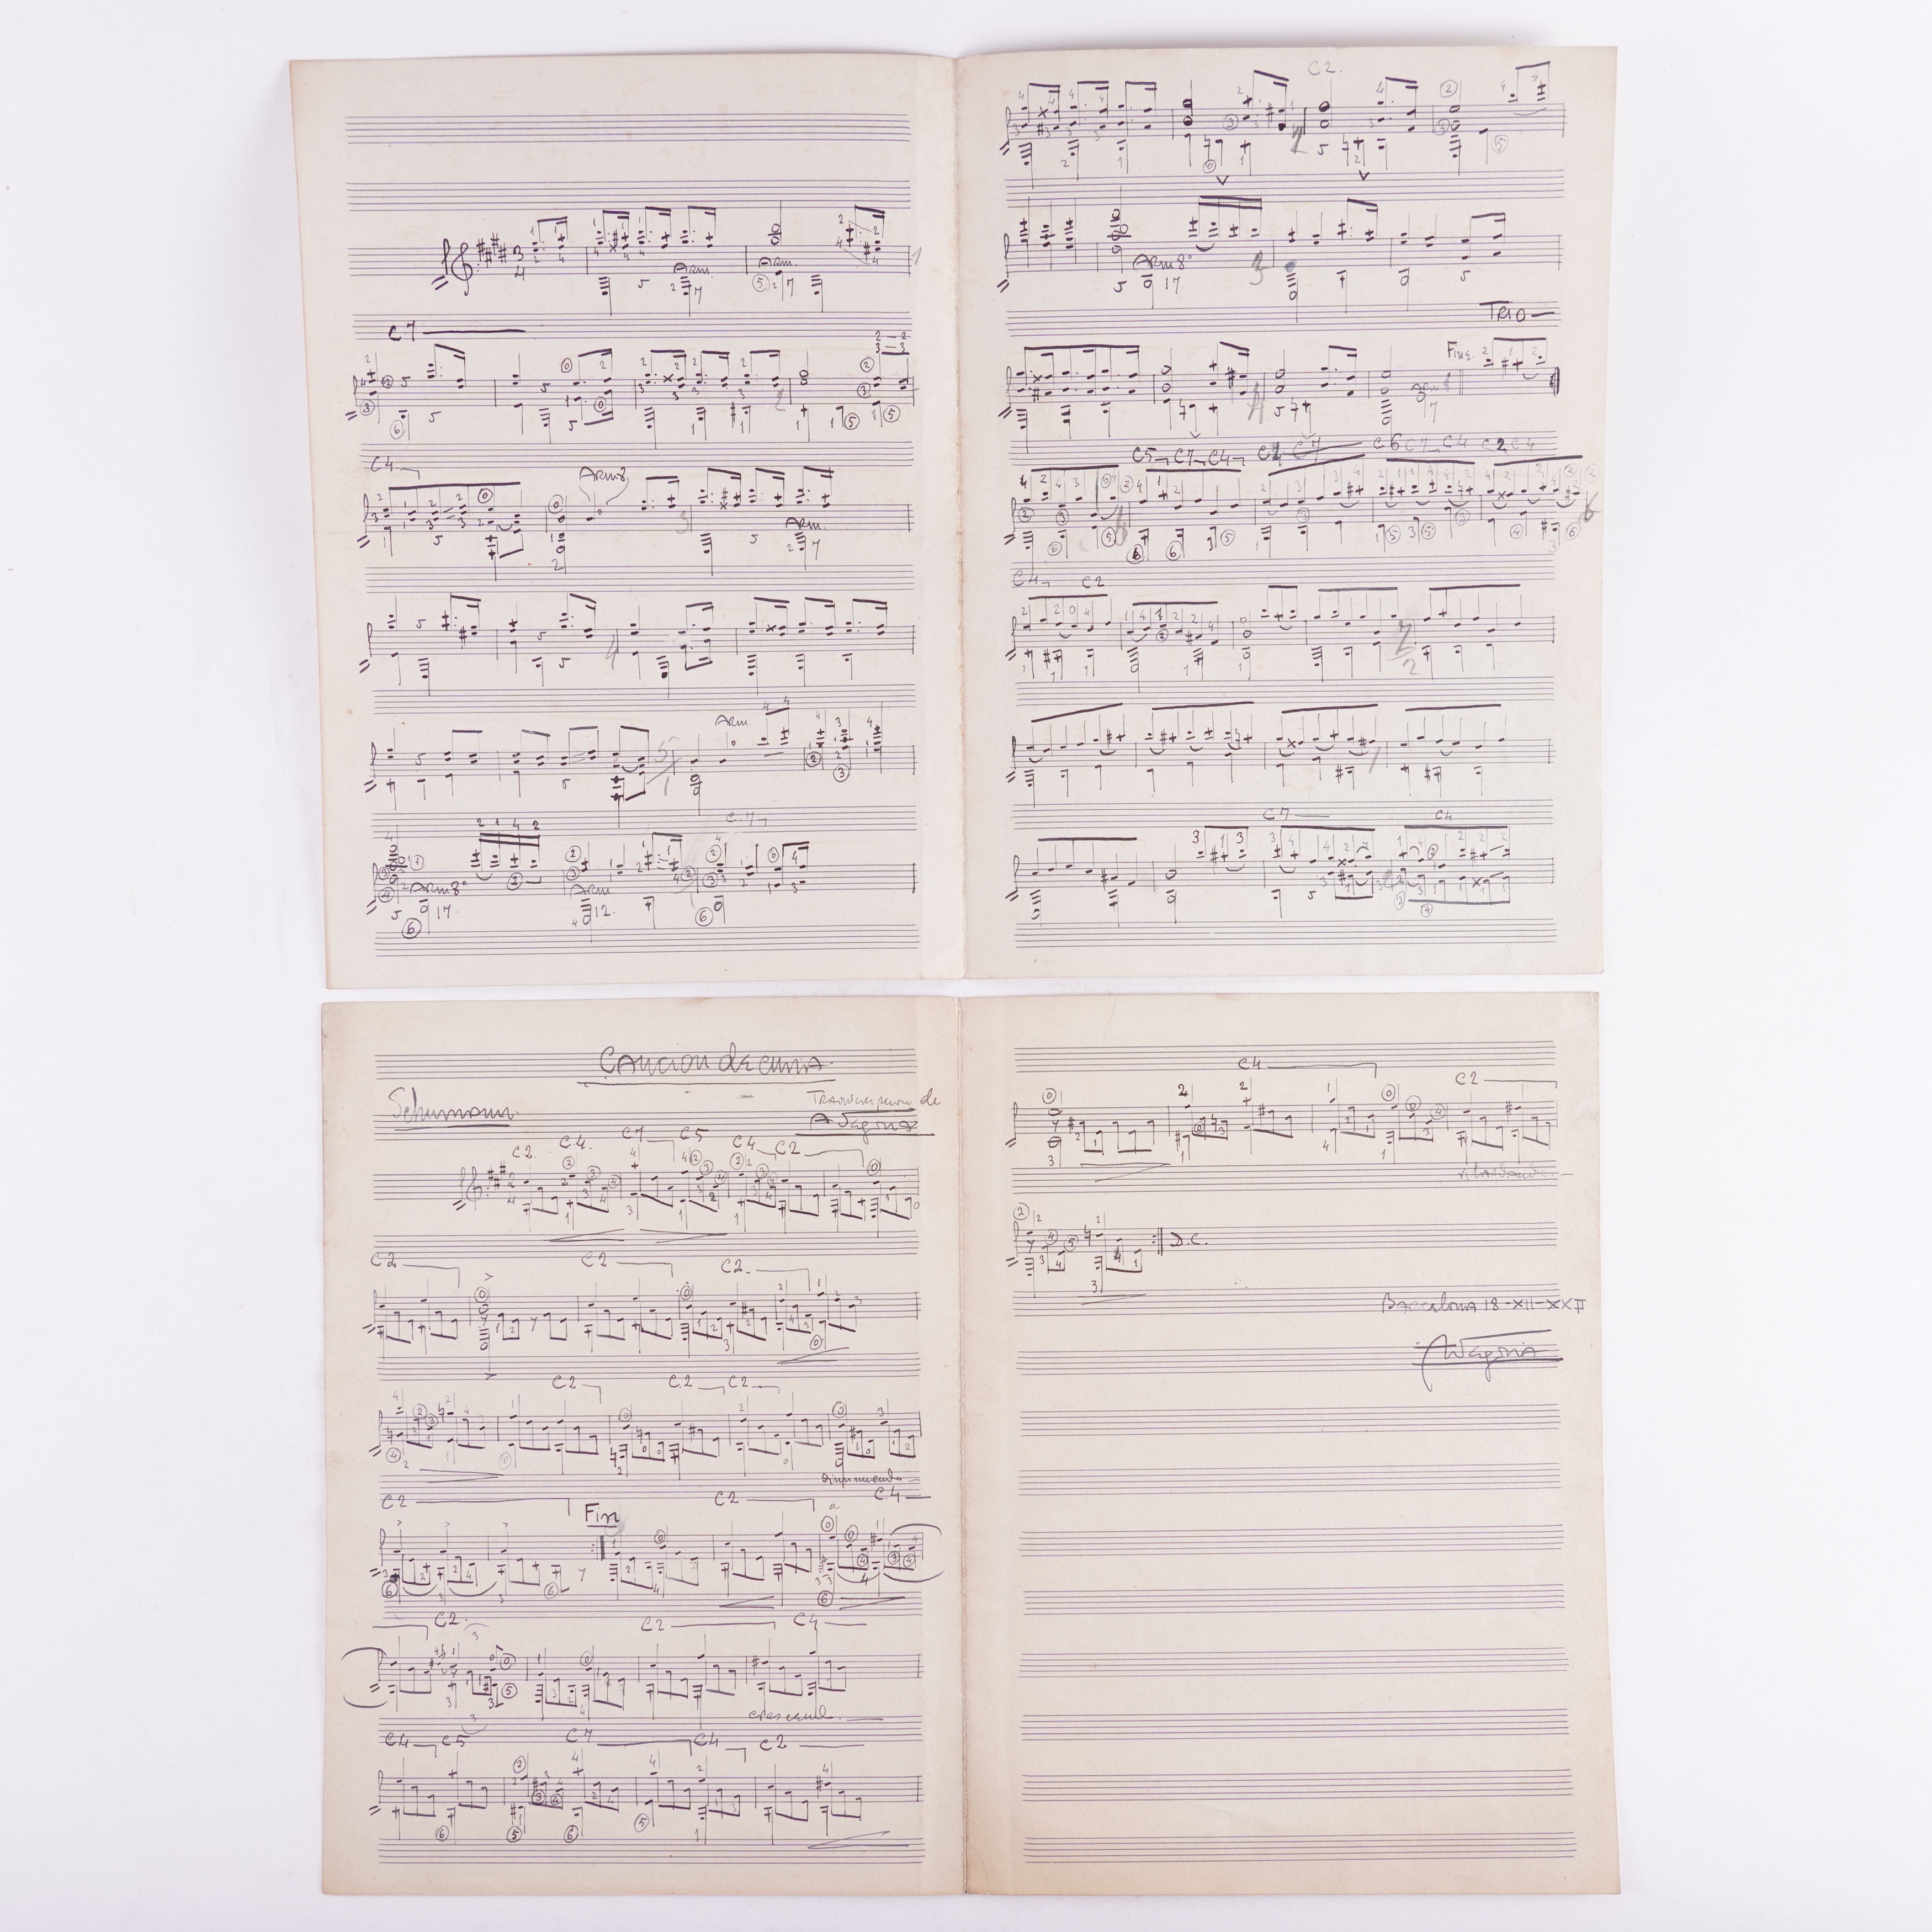 Arm. Arm.
C7
C4 Arm8
Arm.
Arm
C7
Arm8º
Arm
C2.
Arm8º
Trio
Fine.
C5 C7 C4 C7 C6 C7 C4 C2 C4
C4 C2
C7 C4
Cancion de cuna
Schumann. Transcripcion de
ASegovia
C2. C4. C7 C5 C4 C2
C2 C2 C2.
C2 C2 C2
diminuendo
C2 Fin C2 C4
C2. C2 C4
crescend
C4 C5 C7 C4 C2
C4 C2
ritardando
D.C.
Barcelona 18-XII-XXII
ASegovia